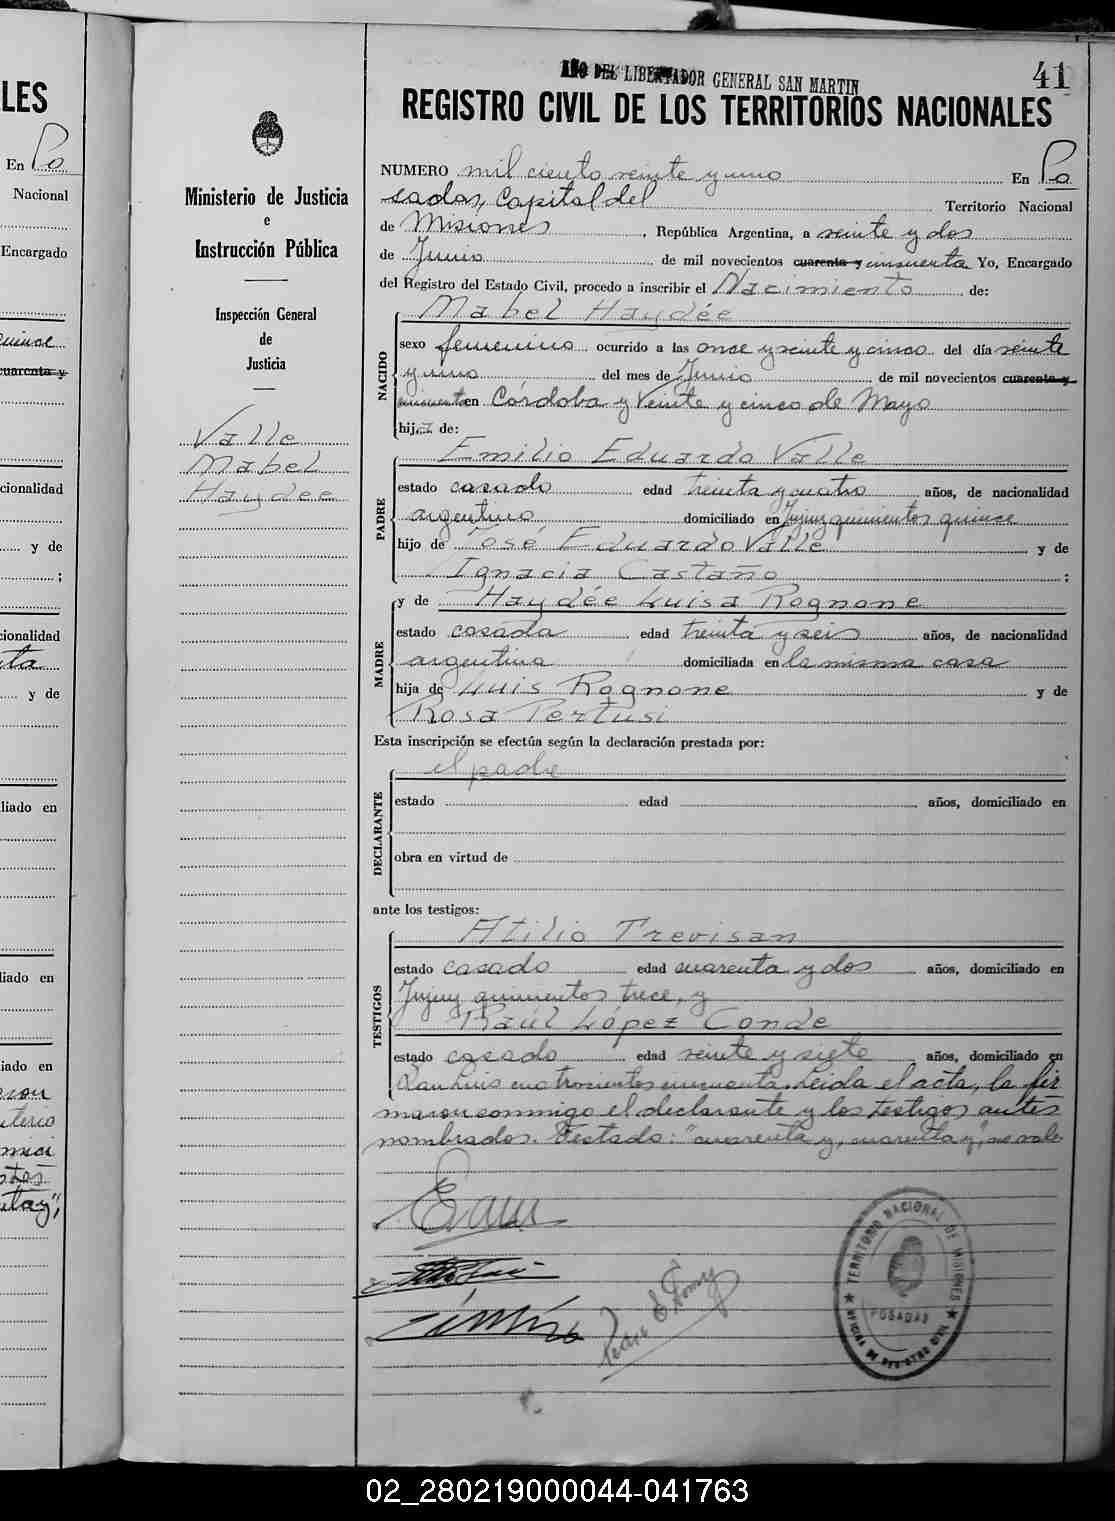 LES
En Po
Nacional
Encargado
cuarenta y
cionalidad
y de
;
cionalidad
y de
liado en
liado en
liado en
Ministerio de Justicia
e
Instrucción Pública
Inspección General
de
Justicia
Valle
Mabel
Haydee
AÑO DEL LIBERTADOR GENERAL SAN MARTIN
41
REGISTRO CIVIL DE LOS TERRITORIOS NACIONALES
NUMERO mil ciento veinte y uno En Po
sadas, Capital del Territorio Nacional
de Misiones, República Argentina, a veinte y dos
de Junio de mil novecientos cuarenta y cincuenta Yo, Encargado
del Registro del Estado Civil, procedo a inscribir el Nacimiento de:
NACIDO
Mabel Haydée
sexo femenino ocurrido a las once y veinte y cinco del día veinte
y uno del mes de Junio de mil novecientos cuarenta y
cincuenta en Córdoba y Veinte y cinco de Mayo
hija de:
PADRE
Emilio Eduardo Valle
estado casado edad treinta y cuatro años, de nacionalidad
argentino domiciliado en Jujuy quinientos quince
hijo de José Eduardo Valle y de
Ignacia Castaño ;
MADRE
y de Haydée Luisa Rognone
estado casada edad treinta y seis años, de nacionalidad
argentina domiciliada en la misma casa
hija de Luis Rognone y de
Rosa Pertusi
Esta inscripción se efectúa según la declaración prestada por:
DECLARANTE
el padre
estado edad años, domiciliado en
obra en virtud de
ante los testigos:
TESTIGOS
Atilio Trevisan
estado casado edad cuarenta y dos años, domiciliado en
Jujuy quinientos trece, y
Raúl López Conde
estado casado edad veinte y siete años, domiciliado en
San Luis cuatrocientos cincuenta. Leida el acta, la fir
maron conmigo el declarante y los testigos antes
nombrados. Testado: "cuarenta y, cuarenta y", no vale.
TERRITORIO NACIONAL DE MISIONES
POSADAS
OFICINA DE REGISTRO CIVIL
02_280219000044-041763